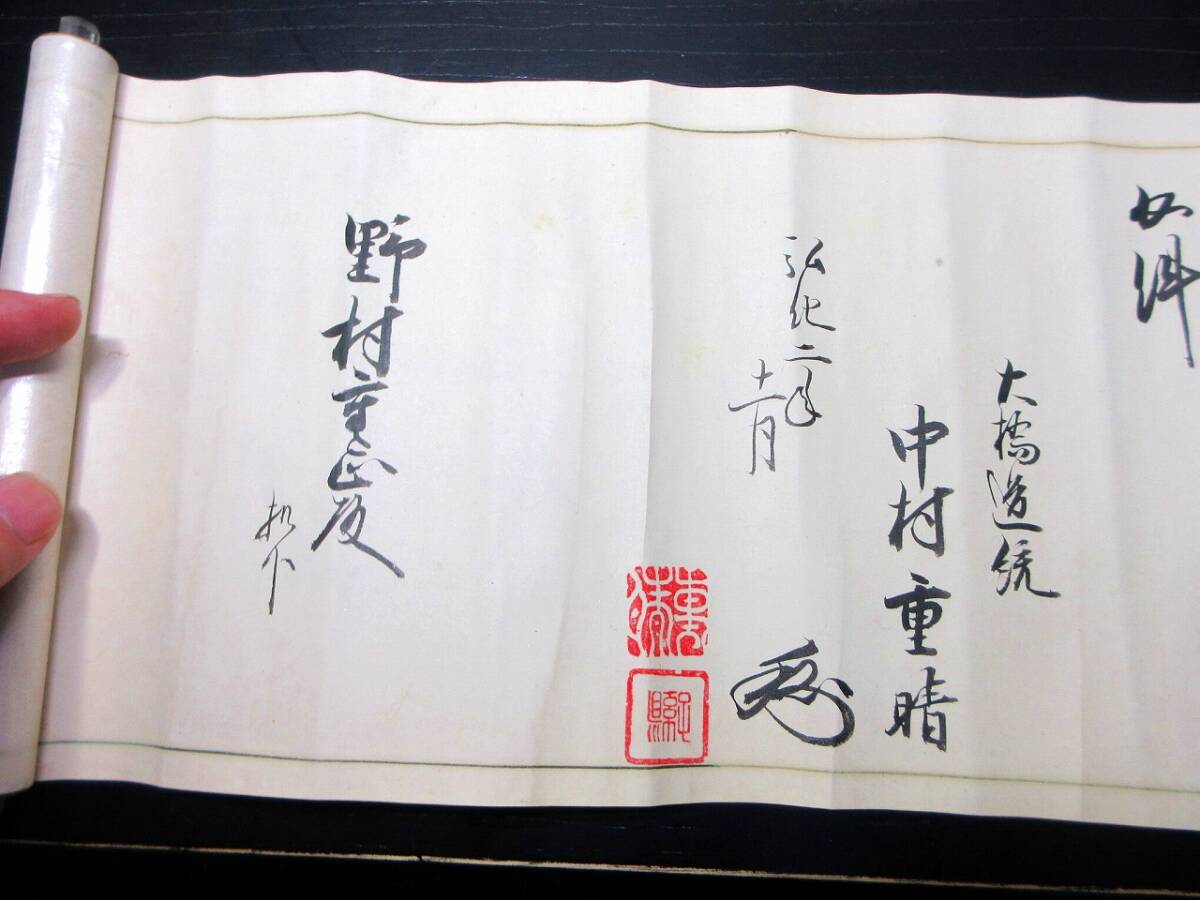 如件
大橋道統
中村重晴
弘化二年
十一月
重晴
野村重正殿
机下